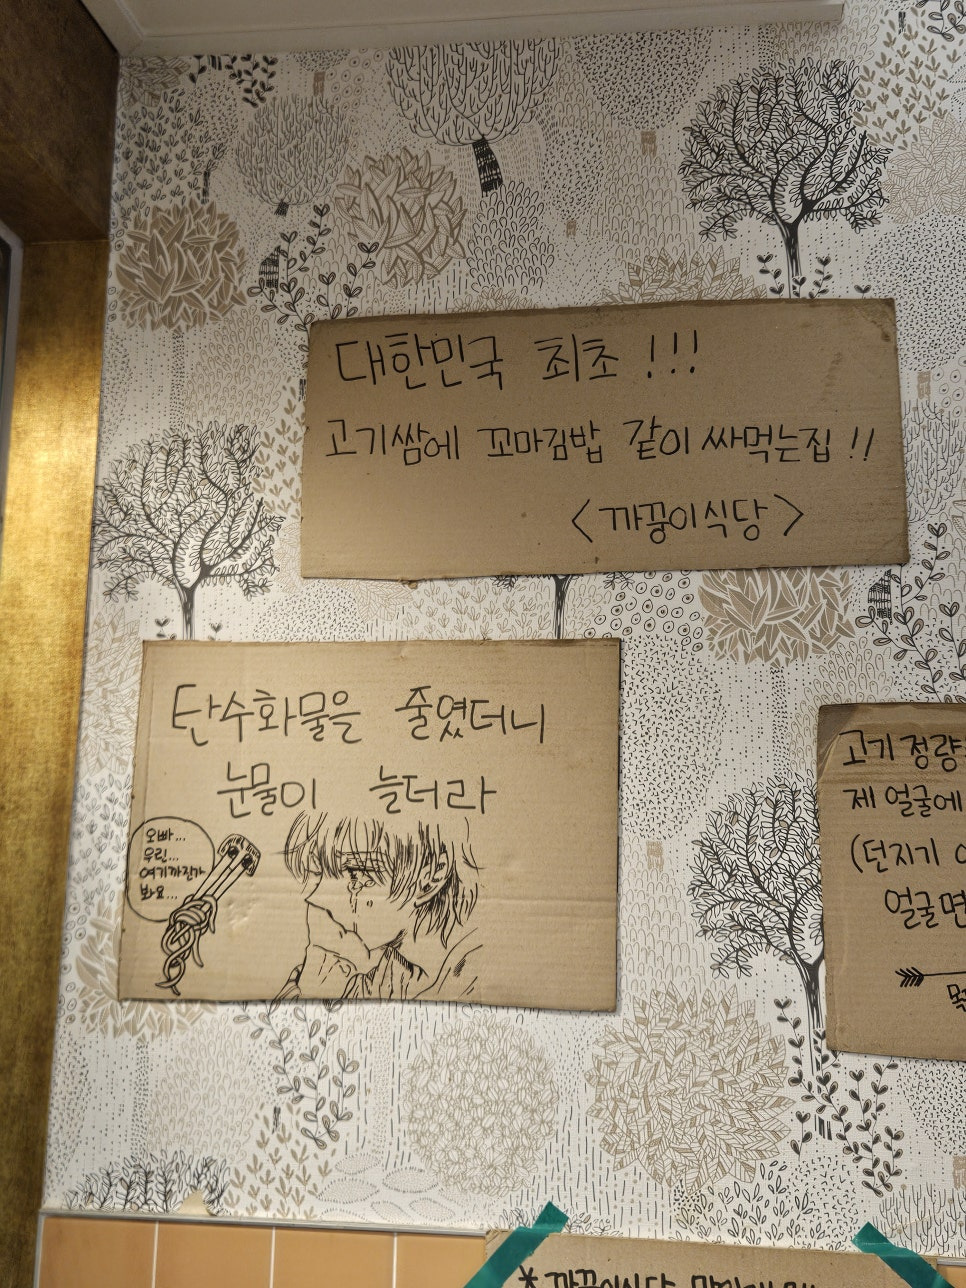 대한민국 최초 !!!
고기쌈에 꼬마김밥 같이 싸먹는집 !!
<까꿍이식당>
탄수화물을 줄였더니
눈물이 늘더라
오빠...
우린...
여기까진가
봐요...
고기 정량
제 얼굴에
(던지기
얼굴면
* 까꿍이식당